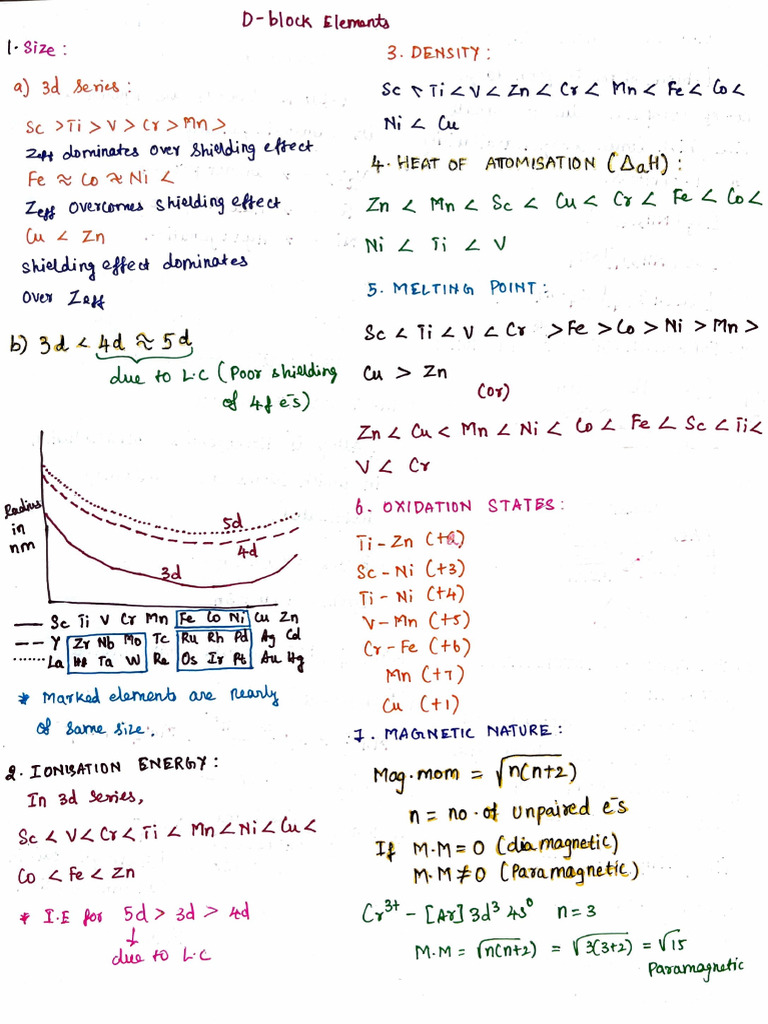 D-block Elements
1. Size:
a) 3d series:
Sc > Ti > V > Cr > Mn >
Zeff dominates over shielding effect
Fe ≈ Co ≈ Ni <
Zeff overcomes shielding effect
Cu < Zn
shielding effect dominates
over Zeff
b) 3d < 4d ≈ 5d
due to L.C (Poor shielding
of 4f e⁻s)
Radius
in
nm
5d
4d
3d
Sc Ti V Cr Mn Fe Co Ni Cu Zn
Y Zr Nb Mo Tc Ru Rh Pd Ag Cd
La Hf Ta W Re Os Ir Pt Au Hg
* Marked elements are nearly
of same size.
2. IONISATION ENERGY:
In 3d series,
Sc < V < Cr < Ti < Mn < Ni < Cu <
Co < Fe < Zn
* I.E for 5d > 3d > 4d
↓
due to L.C
3. DENSITY:
Sc < Ti < V < Zn < Cr < Mn < Fe < Co <
Ni < Cu
4. HEAT OF ATOMISATION (ΔaH):
Zn < Mn < Sc < Cu < Cr < Fe < Co <
Ni < Ti < V
5. MELTING POINT:
Sc < Ti < V < Cr > Fe > Co > Ni > Mn >
Cu > Zn
(or)
Zn < Cu < Mn < Ni < Co < Fe < Sc < Ti <
V < Cr
6. OXIDATION STATES:
Ti - Zn (+2)
Sc - Ni (+3)
Ti - Ni (+4)
V - Mn (+5)
Cr - Fe (+6)
Mn (+7)
Cu (+1)
7. MAGNETIC NATURE:
Mag. mom = √n(n+2)
n = no. of unpaired e⁻s
If M.M = 0 (diamagnetic)
M.M ≠ 0 (Paramagnetic)
Cr³⁺ - [Ar] 3d³ 4s⁰ n = 3
M.M = √n(n+2) = √3(3+2) = √15
Paramagnetic